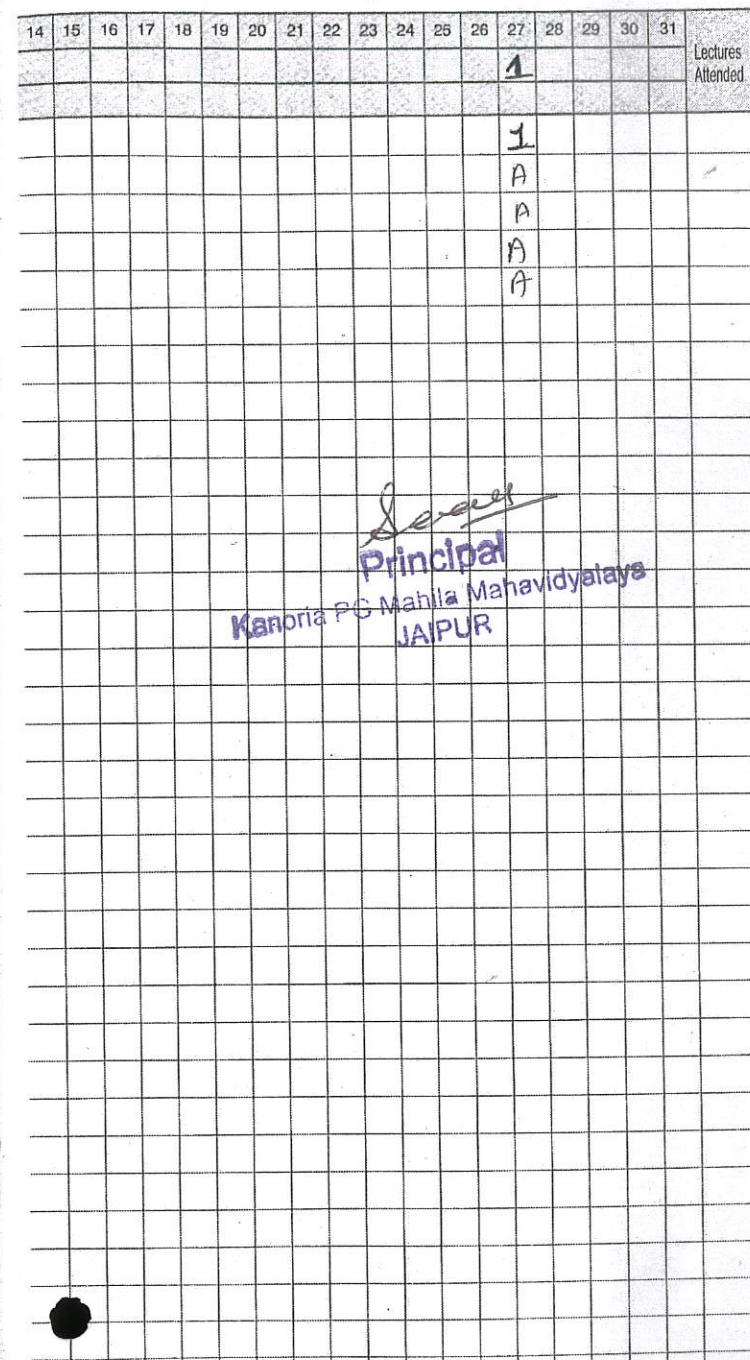 14 15 16 17 18 19 20 21 22 23 24 25 26 27 28 29 30 31 Lectures Attended
1
1
A
A
A
A
Principal
Kanoria PG Mahila Mahavidyalaya
JAIPUR